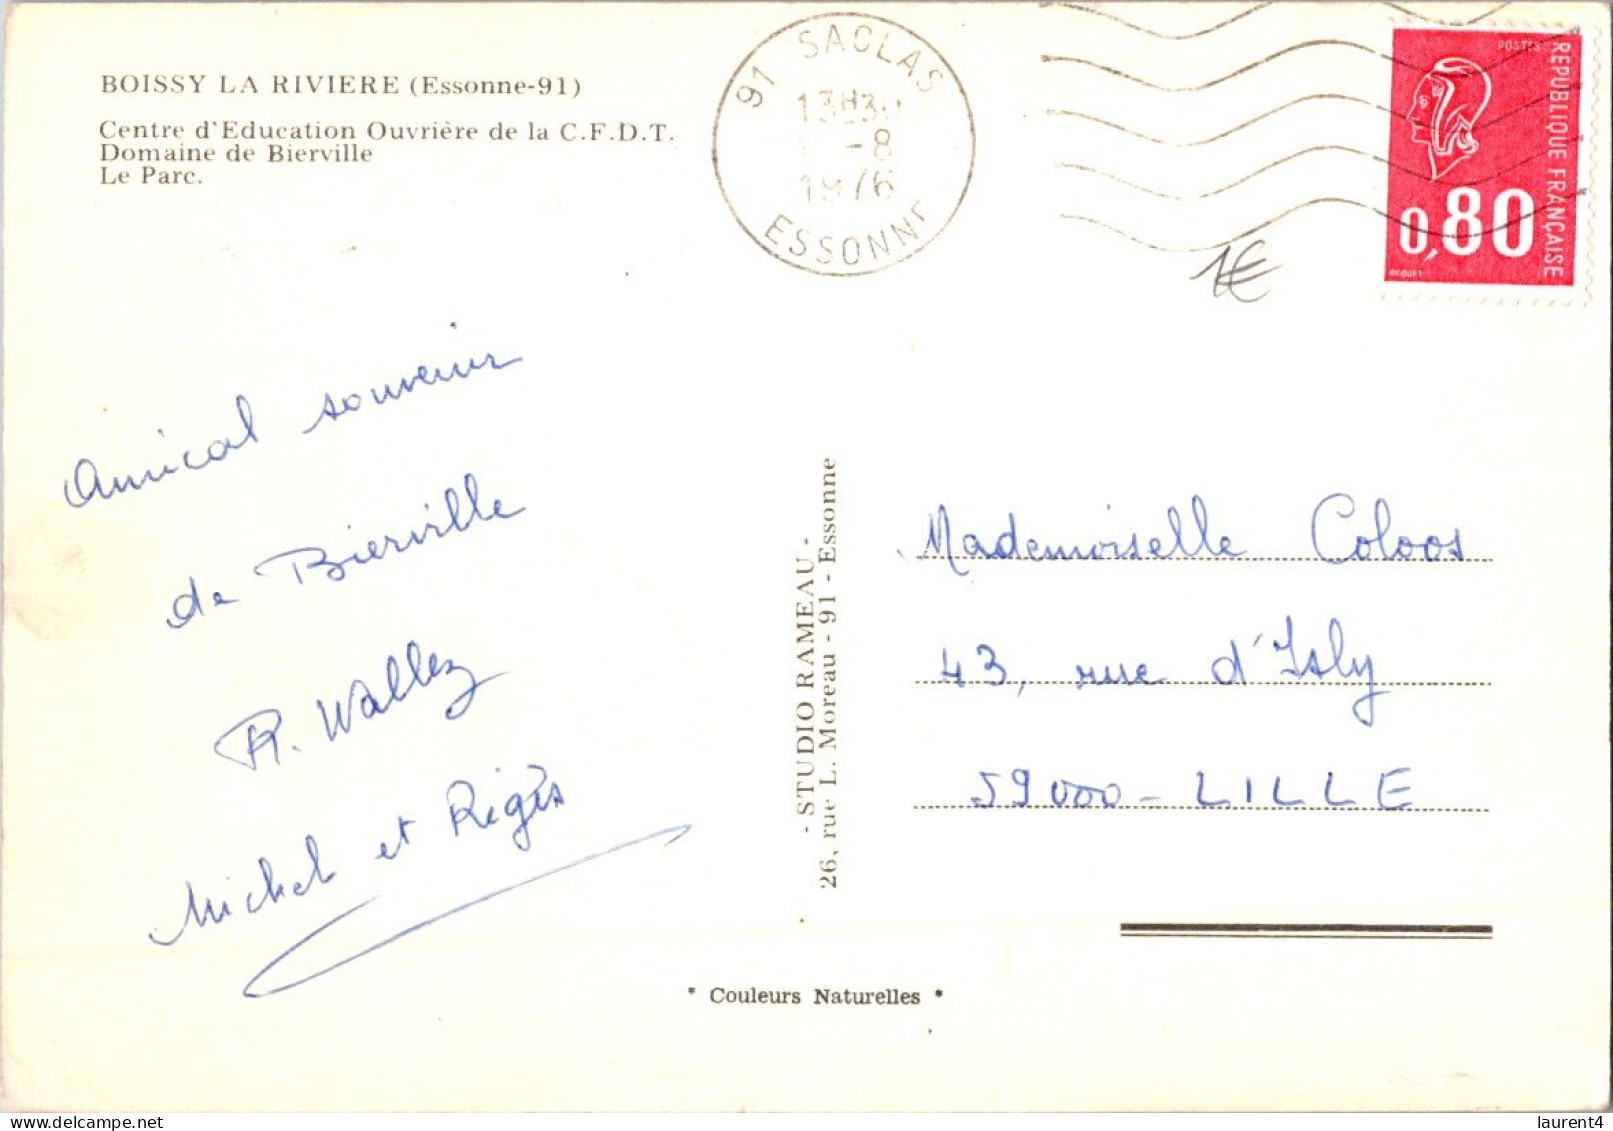 BOISSY LA RIVIERE (Essonne-91)
Centre d'Education Ouvrière de la C.F.D.T.
Domaine de Bierville
Le Parc.
91 SACLAS
13H30
-8
1976
ESSONNE
POSTES
REPUBLIQUE FRANÇAISE
0,80
BEQUET
1€
Amical souvenir
de Bierville
R. Wallez
Michel et Régis
- STUDIO RAMEAU -
26, rue L. Moreau - 91 - Essonne
Mademoiselle Coloos
43, rue d'Isly
59000 - LILLE
* Couleurs Naturelles *
laurent4